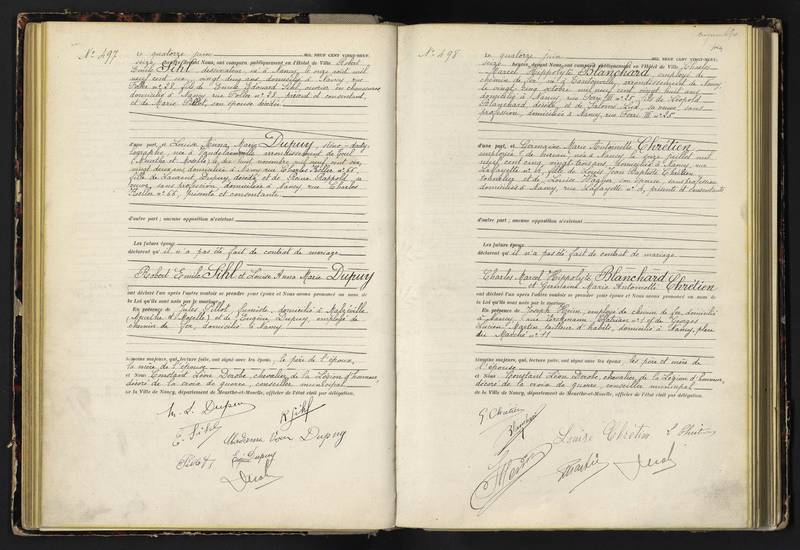 N° 497
Le quatorze juin MIL NEUF CENT VINGT-NEUF,
seize heures, devant Nous, ont comparu publiquement en l'Hôtel de Ville Robert
Emile Sihl dessinateur, né à Nancy, le onze août mil
neuf cent six, vingt deux ans, domicilié à Nancy, rue
n° 38, fils de Emile Edouard Sihl, ouvrier en chaussures
domicilié à Nancy rue n° 38, présent et consentant,
et de Marie Pillot, son épouse décédée
d'une part, et Louise Anna Marie Dupuy, sténo-dactylographe,
née à Vandelainville arrondissement de Toul
(Meurthe et Moselle) le dix huit novembre mil neuf cent six,
vingt deux ans domiciliée à Nancy rue Charles Keller n° 66,
fille de Dupuy, décédé et de Anna Rappold, sa
veuve, sans profession, domiciliée à Nancy rue Charles
Keller n° 66, présente et consentante
d'autre part ; aucune opposition n'existant
Les futurs époux
déclarent qu'il n'a pas été fait de contrat de mariage
Robert Emile Sihl et Louise Anna Marie Dupuy
ont déclaré l'un après l'autre vouloir se prendre pour époux et Nous avons prononcé au nom de
la Loi qu'ils sont unis par le mariage.
En présence de Jules Pillot, fumiste, domicilié à Malzéville
(Meurthe et Moselle) et de Eugène Dupuy, employé de
chemin de fer, domicilié à Nancy
témoins majeurs, qui, lecture faite, ont signé avec les époux, le père de l'époux,
la mère de l'épouse
et Nous Constant Léon Dérobe, chevalier de la Légion d'honneur
décoré de la croix de guerre, conseiller municipal
de la Ville de Nancy, département de Meurthe-et-Moselle, officier de l'état civil par délégation.
M. L. Dupuy
R Sihl
E. Sihl
Madame Veuve Dupuy
Pillot
Eug Dupuy
Dérobe
N° 498
Le quatorze juin MIL NEUF CENT VINGT-NEUF,
seize heures, devant Nous, ont comparu publiquement en l'Hôtel de Ville Charles
Marcel Hippolyte Blanchard, employé de
chemin de fer, né à arrondissement de Nancy,
le vingt cinq octobre mil neuf cent, vingt huit ans
domicilié à Nancy, rue Ferri III n° 25, fils de Léopold
Blanchard, décédé, et de sa veuve, sans
profession, domiciliée à Nancy, rue Ferri III n° 25
d'une part, et Germaine Marie Antoinette Chrétien
employée de bureau, née à Nancy, le onze juillet mil
neuf cent cinq, vingt trois ans, domiciliée à Nancy, rue
Lafayette n° 6, fille de Louis Jean Baptiste Chrétien,
et de Louise son épouse, sans profession
domiciliés à Nancy, rue Lafayette n° 6, présents et consentants
d'autre part ; aucune opposition n'existant
Les futurs époux
déclarent qu'il n'a pas été fait de contrat de mariage
Charles Marcel Hippolyte Blanchard
et Germaine Marie Antoinette Chrétien
ont déclaré l'un après l'autre vouloir se prendre pour époux et Nous avons prononcé au nom de
la Loi qu'ils sont unis par le mariage.
En présence de Joseph employé de chemin de fer, domicilié
à Nancy, rue Erckmann Chatrian n° 5 et de Georges
Lucien Martin, tailleur d'habits, domicilié à Nancy, place
du Marché n° 11
témoins majeurs, qui, lecture faite, ont signé avec les époux, les père et mère de
l'épouse
et Nous Constant Léon Dérobe, chevalier de la Légion d'honneur,
décoré de la croix de guerre, conseiller municipal
de la Ville de Nancy, département de Meurthe-et-Moselle, officier de l'état civil par délégation.
G Chrétien
Blanchard
Louise Chrétien
L Chrétien
Martin
Dérobe